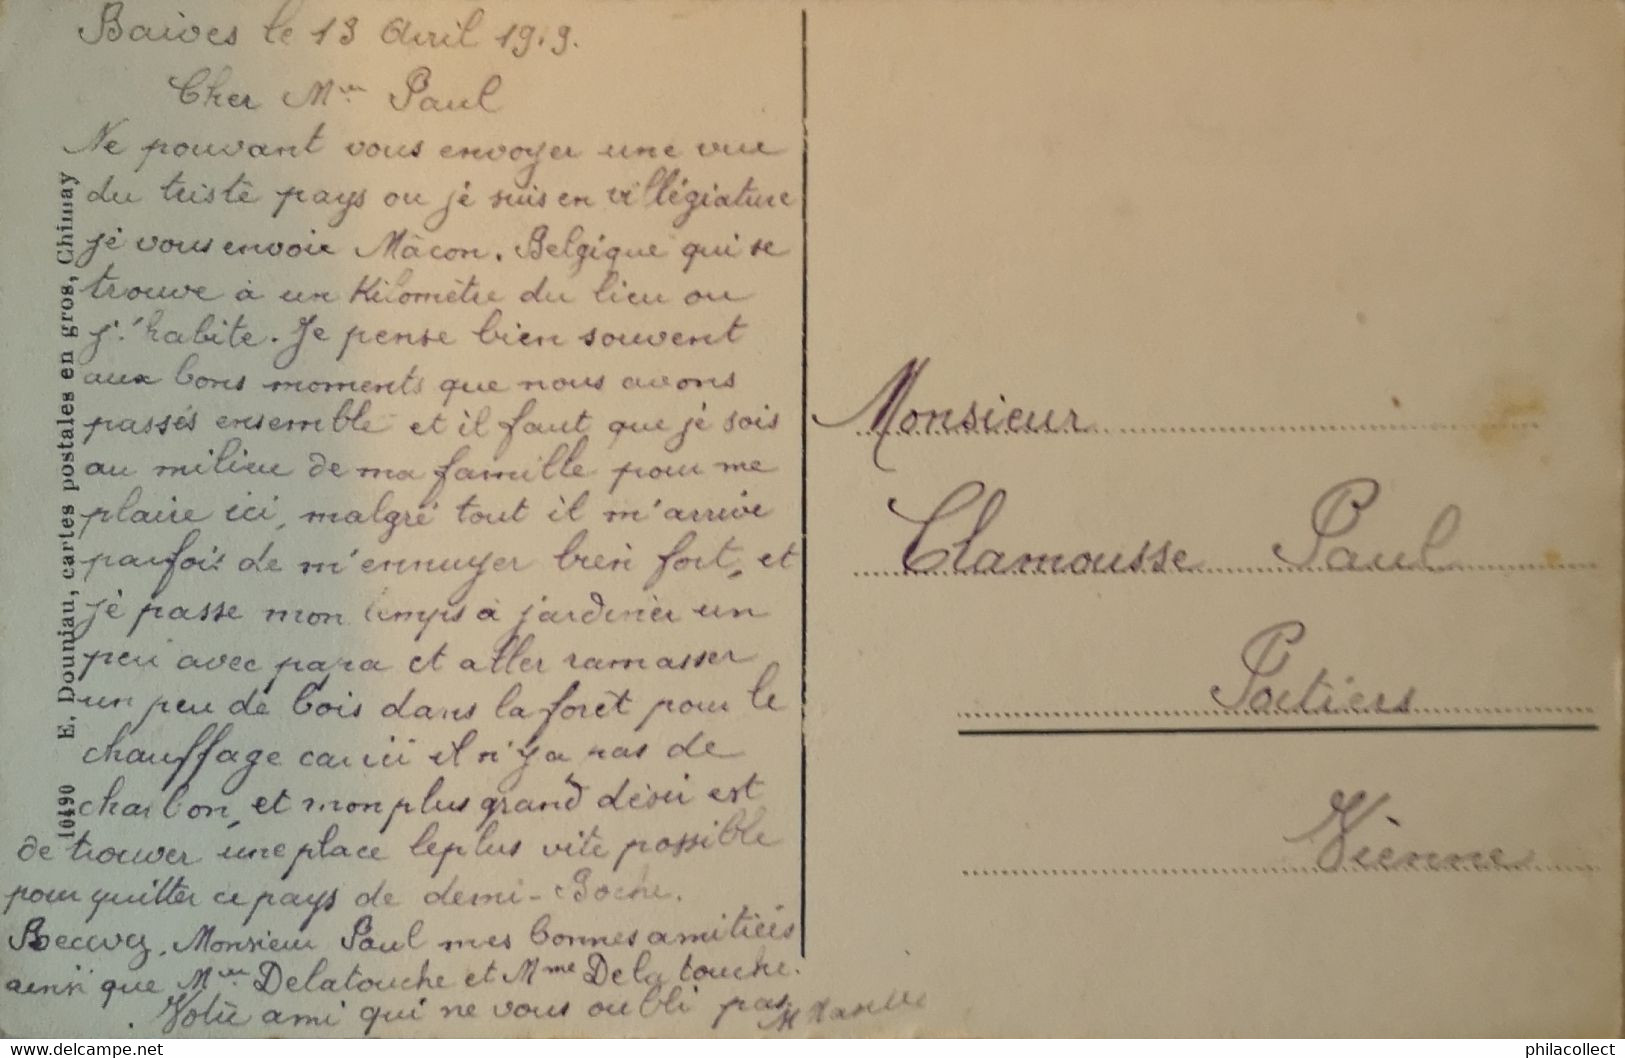 Baives le 13 Avril 1919.
Cher Mr Paul
Ne pouvant vous envoyer une vue
du triste pays ou je suis en villégiature
je vous envoie Mâcon. Belgique qui se
trouve à un Kilomètre du lieu ou
j'habite. Je pense bien souvent
aux bons moments que nous avons
passés ensemble et il faut que je sois
au milieu de ma famille pour me
plaire ici, malgré tout il m'arrive
parfois de m'ennuyer bien fort, et
je passe mon temps à jardiner un
peu avec papa et aller ramasser
un peu de bois dans la forêt pour le
chauffage car ici il n'y a pas de
charbon, et mon plus grand désir est
de trouver une place le plus vite possible
pour quitter ce pays de demi-Boche.
Recevez, Monsieur Paul mes bonnes amitiés
ainsi que Mr Delatouche et Mme Delatouche.
Votre ami qui ne vous oubli pas.
10490 E. Douniau, cartes postales en gros, Chimay
Monsieur
Clamousse Paul
Poitiers
Vienne
www.delcampe.net
philacollect